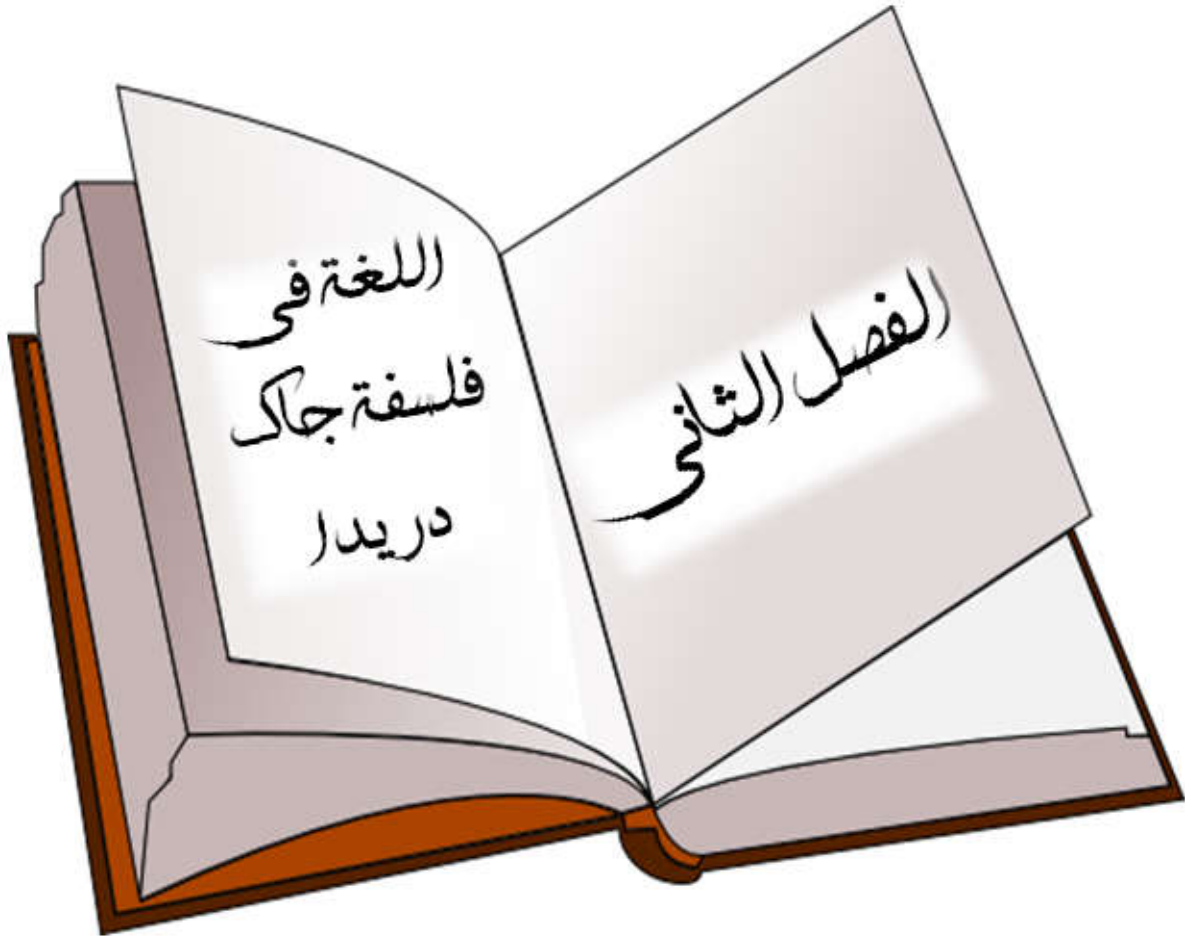 الفصل الثانى
اللغة فى
فلسفة جاك
دريدا